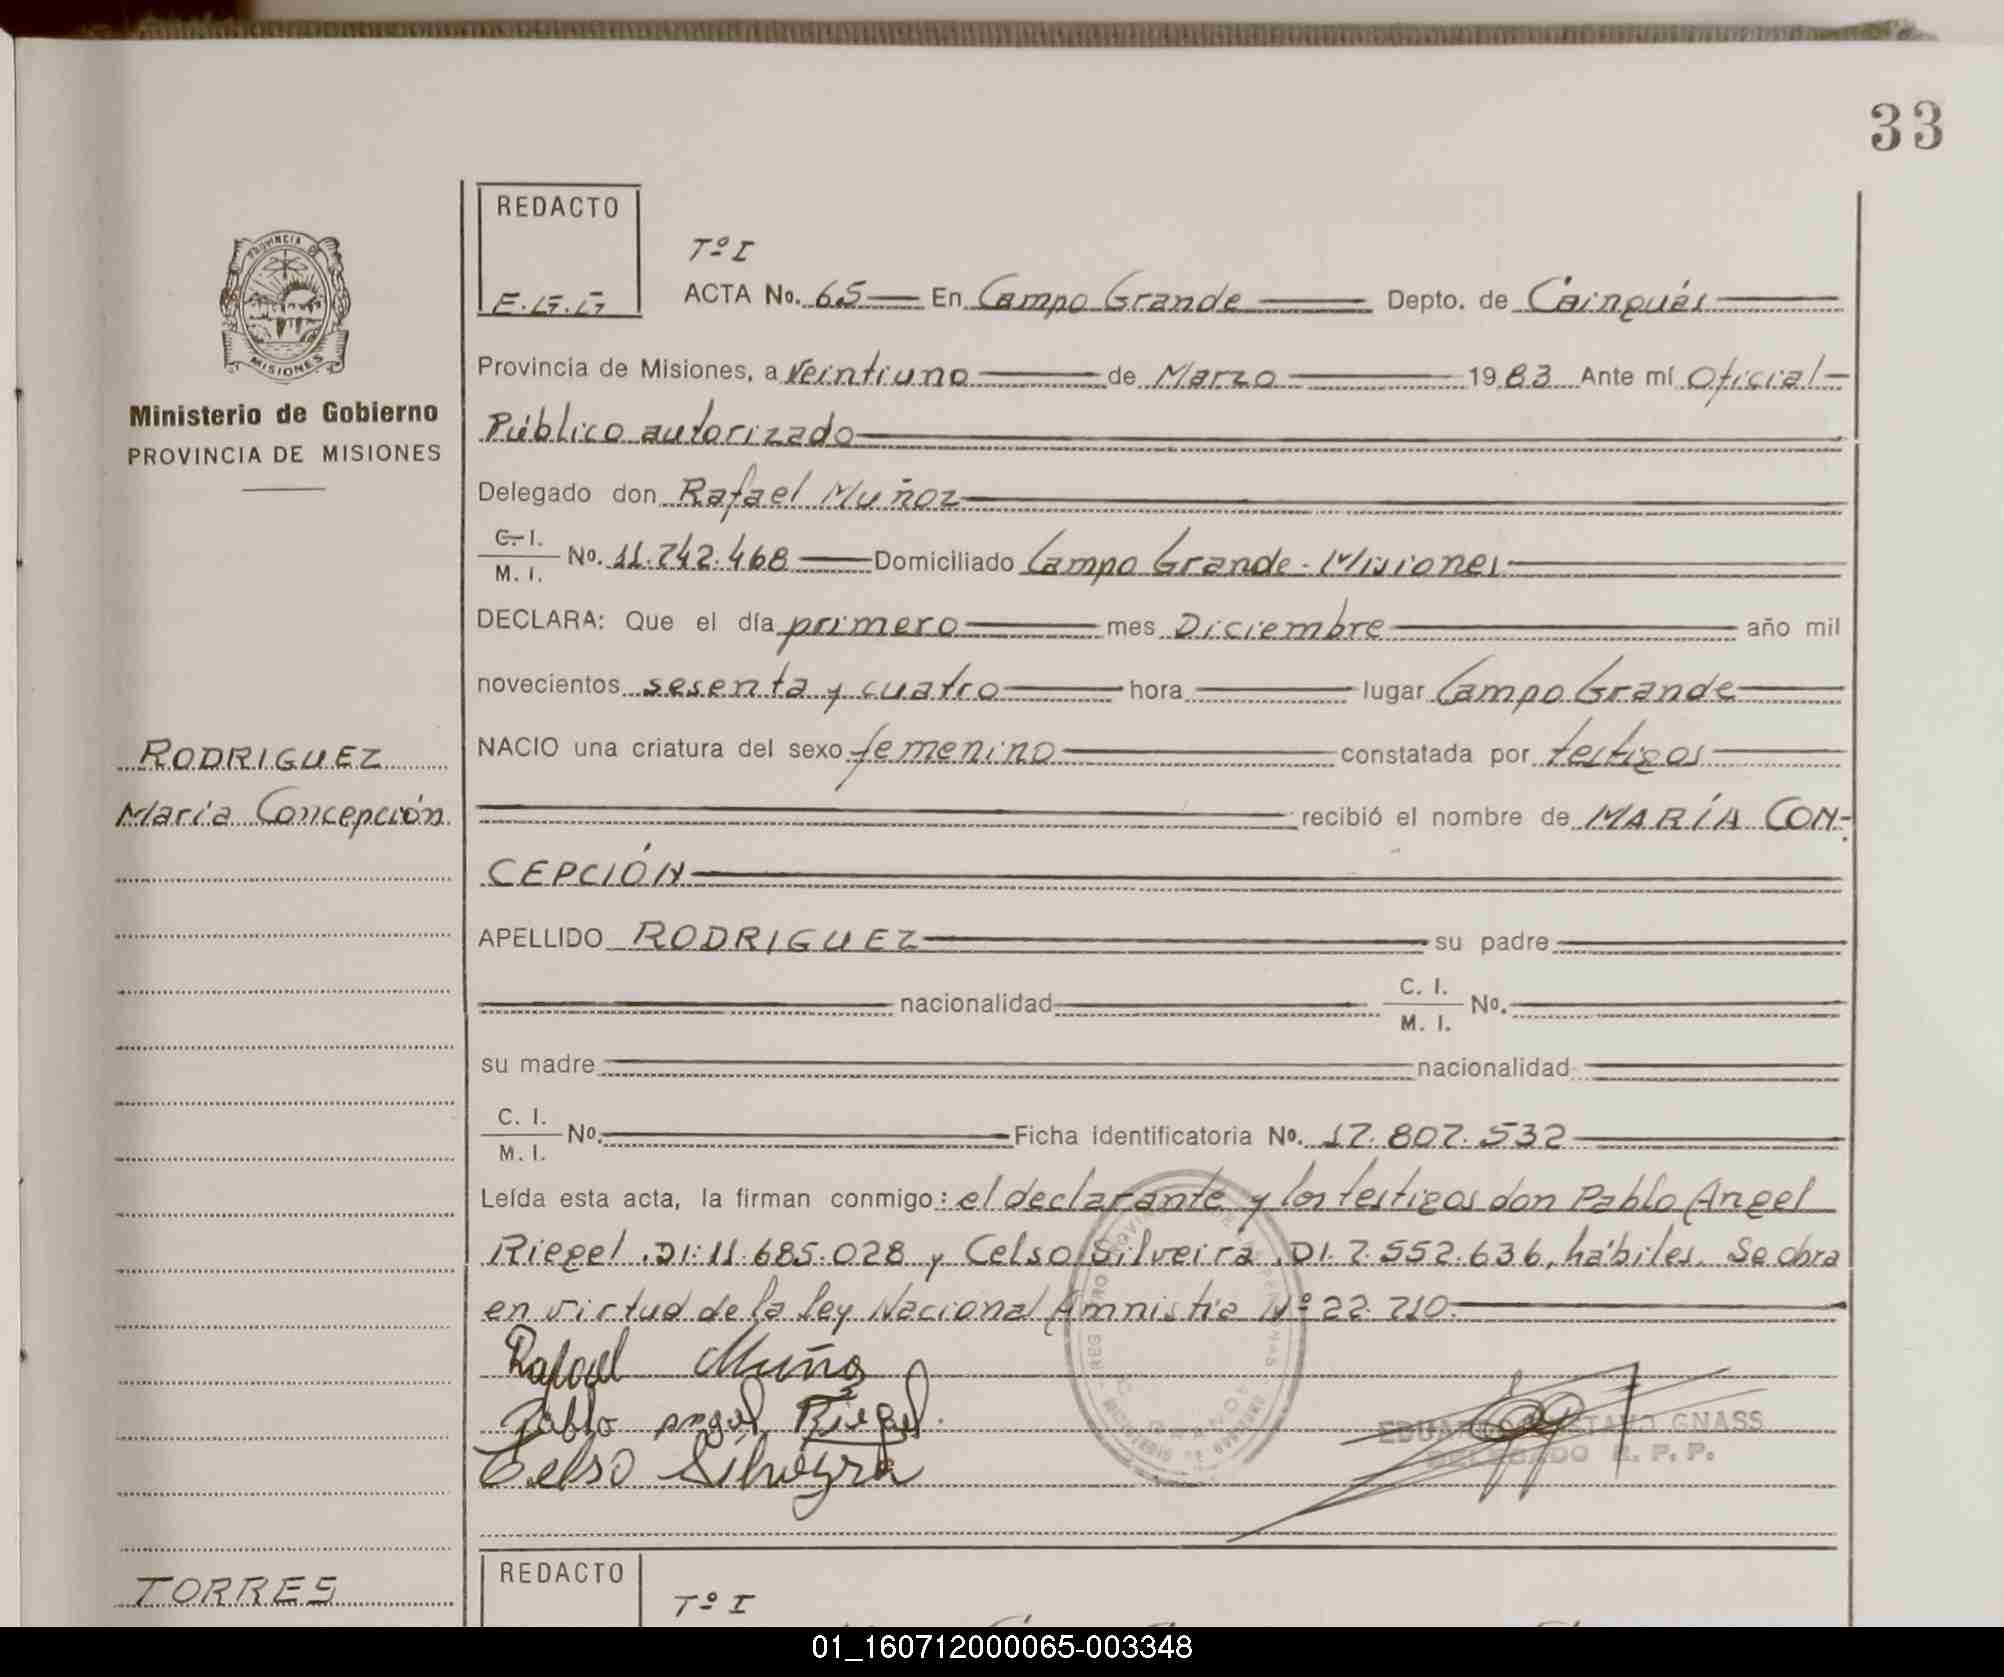 33
REDACTO
E.G.G
PROVINCIA DE
MISIONES
Ministerio de Gobierno
PROVINCIA DE MISIONES
Tº I
ACTA No. 65 En Campo Grande Depto. de Cainguás
Provincia de Misiones, a veintiuno de Marzo 1983 Ante mí Oficial
Público autorizado
Delegado don Rafael Muñoz
C. I. / M. I. No. 11.742.468 Domiciliado Campo Grande - Misiones
DECLARA: Que el día primero mes Diciembre año mil
novecientos sesenta y cuatro hora lugar Campo Grande
NACIO una criatura del sexo femenino constatada por testigos
RODRIGUEZ
María Concepción
recibió el nombre de MARÍA CON-
CEPCIÓN
APELLIDO RODRIGUEZ su padre
nacionalidad C. I. / M. I. No.
su madre nacionalidad
C. I. / M. I. No. Ficha identificatoria No. 17.807.532
Leída esta acta, la firman conmigo: el declarante y los testigos don Pablo Angel
Riegel .DI: 11.685.028 y Celso Silveira .DI. 7.552.636, hábiles. Se obra
en virtud de la ley Nacional Amnistía Nº 22.710.
Rafael Muñoz
Pablo angel Riegel.
Celso Silveyra
EDUARDO GNASS
DELEGADO R. P. P.
TORRES
REDACTO
Tº I
01_160712000065-003348